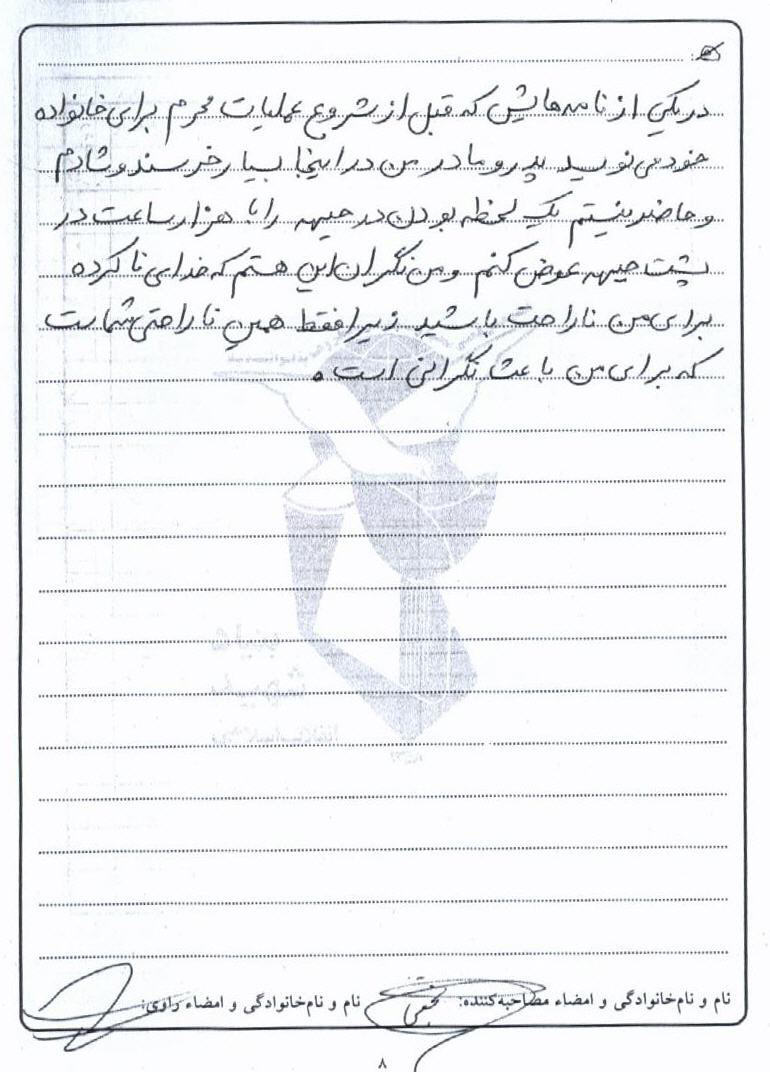 در یکی از نامه هایش که قبل از شروع عملیات محرم برای خانواده
خود می نویسد پدر و مادر من در اینجا بسیار خرسند و شادم
و حاضر نیستم یک لحظه بودن در جبهه را با هزار ساعت در
پشت جبهه عوض کنم و من نگران این هستم که خدای ناکرده
برای من ناراحت باشید زیرا فقط همین ناراحتی شماست
که برای من باعث نگرانی است.
نام و نام‌خانوادگی و امضاء مصاحبه‌کننده:
نام و نام‌خانوادگی و امضاء راوی:
۸